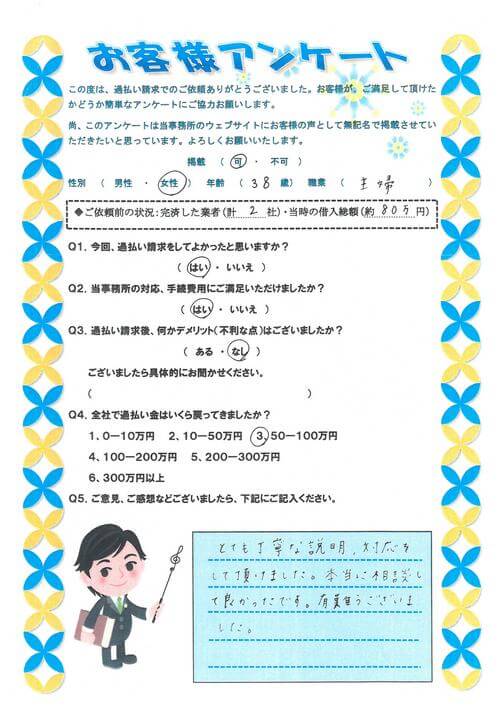 お客様アンケート
この度は、過払い請求でのご依頼ありがとうございました。お客様が、ご満足して頂けた
かどうか簡単なアンケートにご協力お願いします。
尚、このアンケートは当事務所のウェブサイトにお客様の声として無記名で掲載させてい
ただきたいと思っています。よろしくお願いいたします。
掲載 ( 可 ・ 不可 )
性別 ( 男性 ・ 女性 ) 年齢 ( 38 歳) 職業 ( 主婦 )
◆ご依頼前の状況:完済した業者(計 2 社)・当時の借入総額(約 80万 円)
Q1. 今回、過払い請求をしてよかったと思いますか?
( はい ・ いいえ )
Q2. 当事務所の対応、手続費用にご満足いただけましたか?
( はい ・ いいえ )
Q3. 過払い請求後、何かデメリット(不利な点)はございましたか?
( ある ・ なし )
ございましたら具体的にお聞かせください。
( )
Q4. 全社で過払い金はいくら戻ってきましたか?
1、0ー10万円 2、10ー50万円 3、50ー100万円
4、100ー200万円 5、200ー300万円
6、300万円以上
Q5. ご意見、ご感想などございましたら、下記にご記入ください。
とても丁寧な説明、対応を
して頂けました。本当に相談し
て良かったです。有難うございま
した。